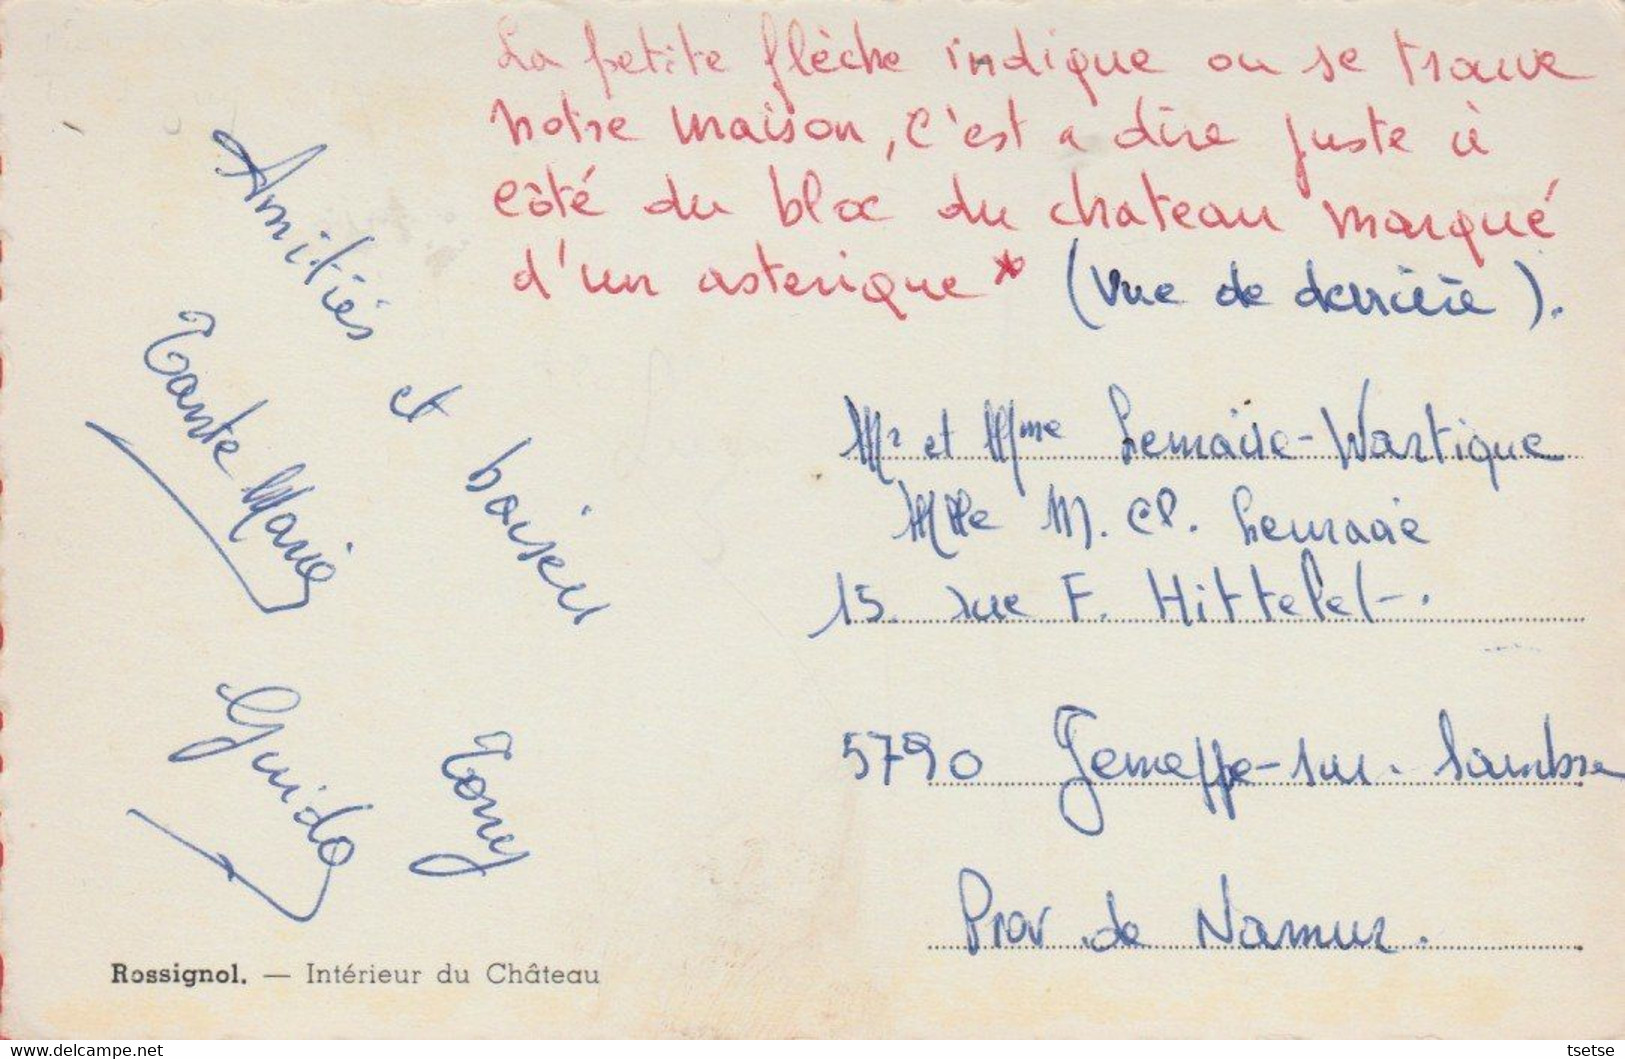 La petite flèche indique ou se trouve
notre maison, c'est a dire juste à
côté du bloc du chateau marqué
d'un asterique * (vue de derrière).
Amitiés et baisers
Tante Marie
Guido
Tony
Mr et Mme Lemaire-Wartique
Mlle M. Cl. Lemaire
15. rue F. Hittelet.
5790 Jemeppe-sur-Sambre
Prov. de Namur.
Rossignol. — Intérieur du Château
www.delcampe.net
tsetse